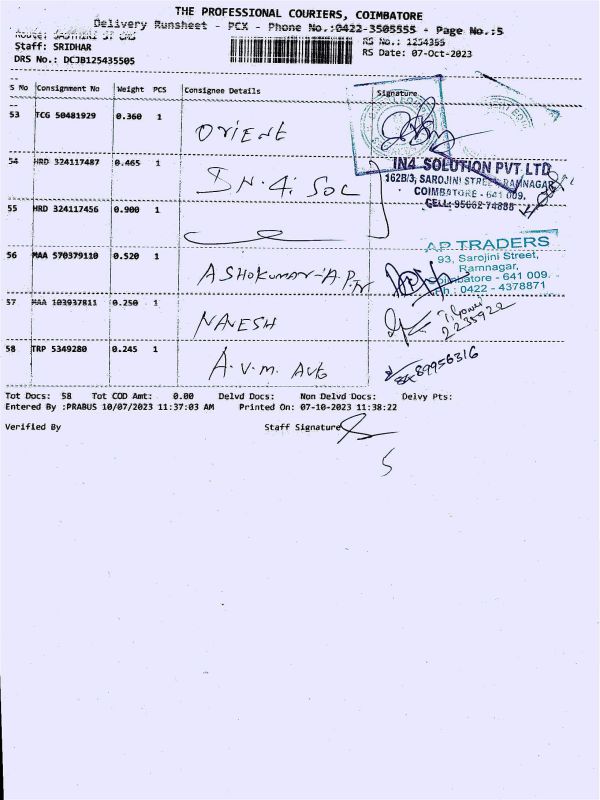 THE PROFESSIONAL COURIERS, COIMBATORE
Delivery Runsheet - PCX - Phone No.:0422-3505555 - Page No.:5
Route:
Staff: SRIDHAR
DRS No.: DCJB125435505
RS No.: 1254355
RS Date: 07-Oct-2023
S No Consignment No Weight PCS Consignee Details Signature
53 TCG 50481929 0.360 1 ORIENT
54 HRD 324117487 0.465 1 IN.4. SOC
IN4 SOLUTION PVT LTD
162B/3, SAROJINI STREET, RAMNAGAR
COIMBATORE - 641 009.
CELL: 95662 74888
55 HRD 324117456 0.900 1
56 MAA 570379110 0.520 1 ASHOKUMAR-A.P.Tr
A.P. TRADERS
93, Sarojini Street,
Ramnagar,
Coimbatore - 641 009.
Ph : 0422 - 4378871
57 MAA 103937811 0.250 1 NAVESH
2235922
58 TRP 5349280 0.245 1 A.V.M. AVE
89956316
Tot Docs: 58 Tot COD Amt: 0.00 Delvd Docs: Non Delvd Docs: Delvy Pts:
Entered By :PRABUS 10/07/2023 11:37:03 AM Printed On: 07-10-2023 11:38:22
Verified By Staff Signature
5